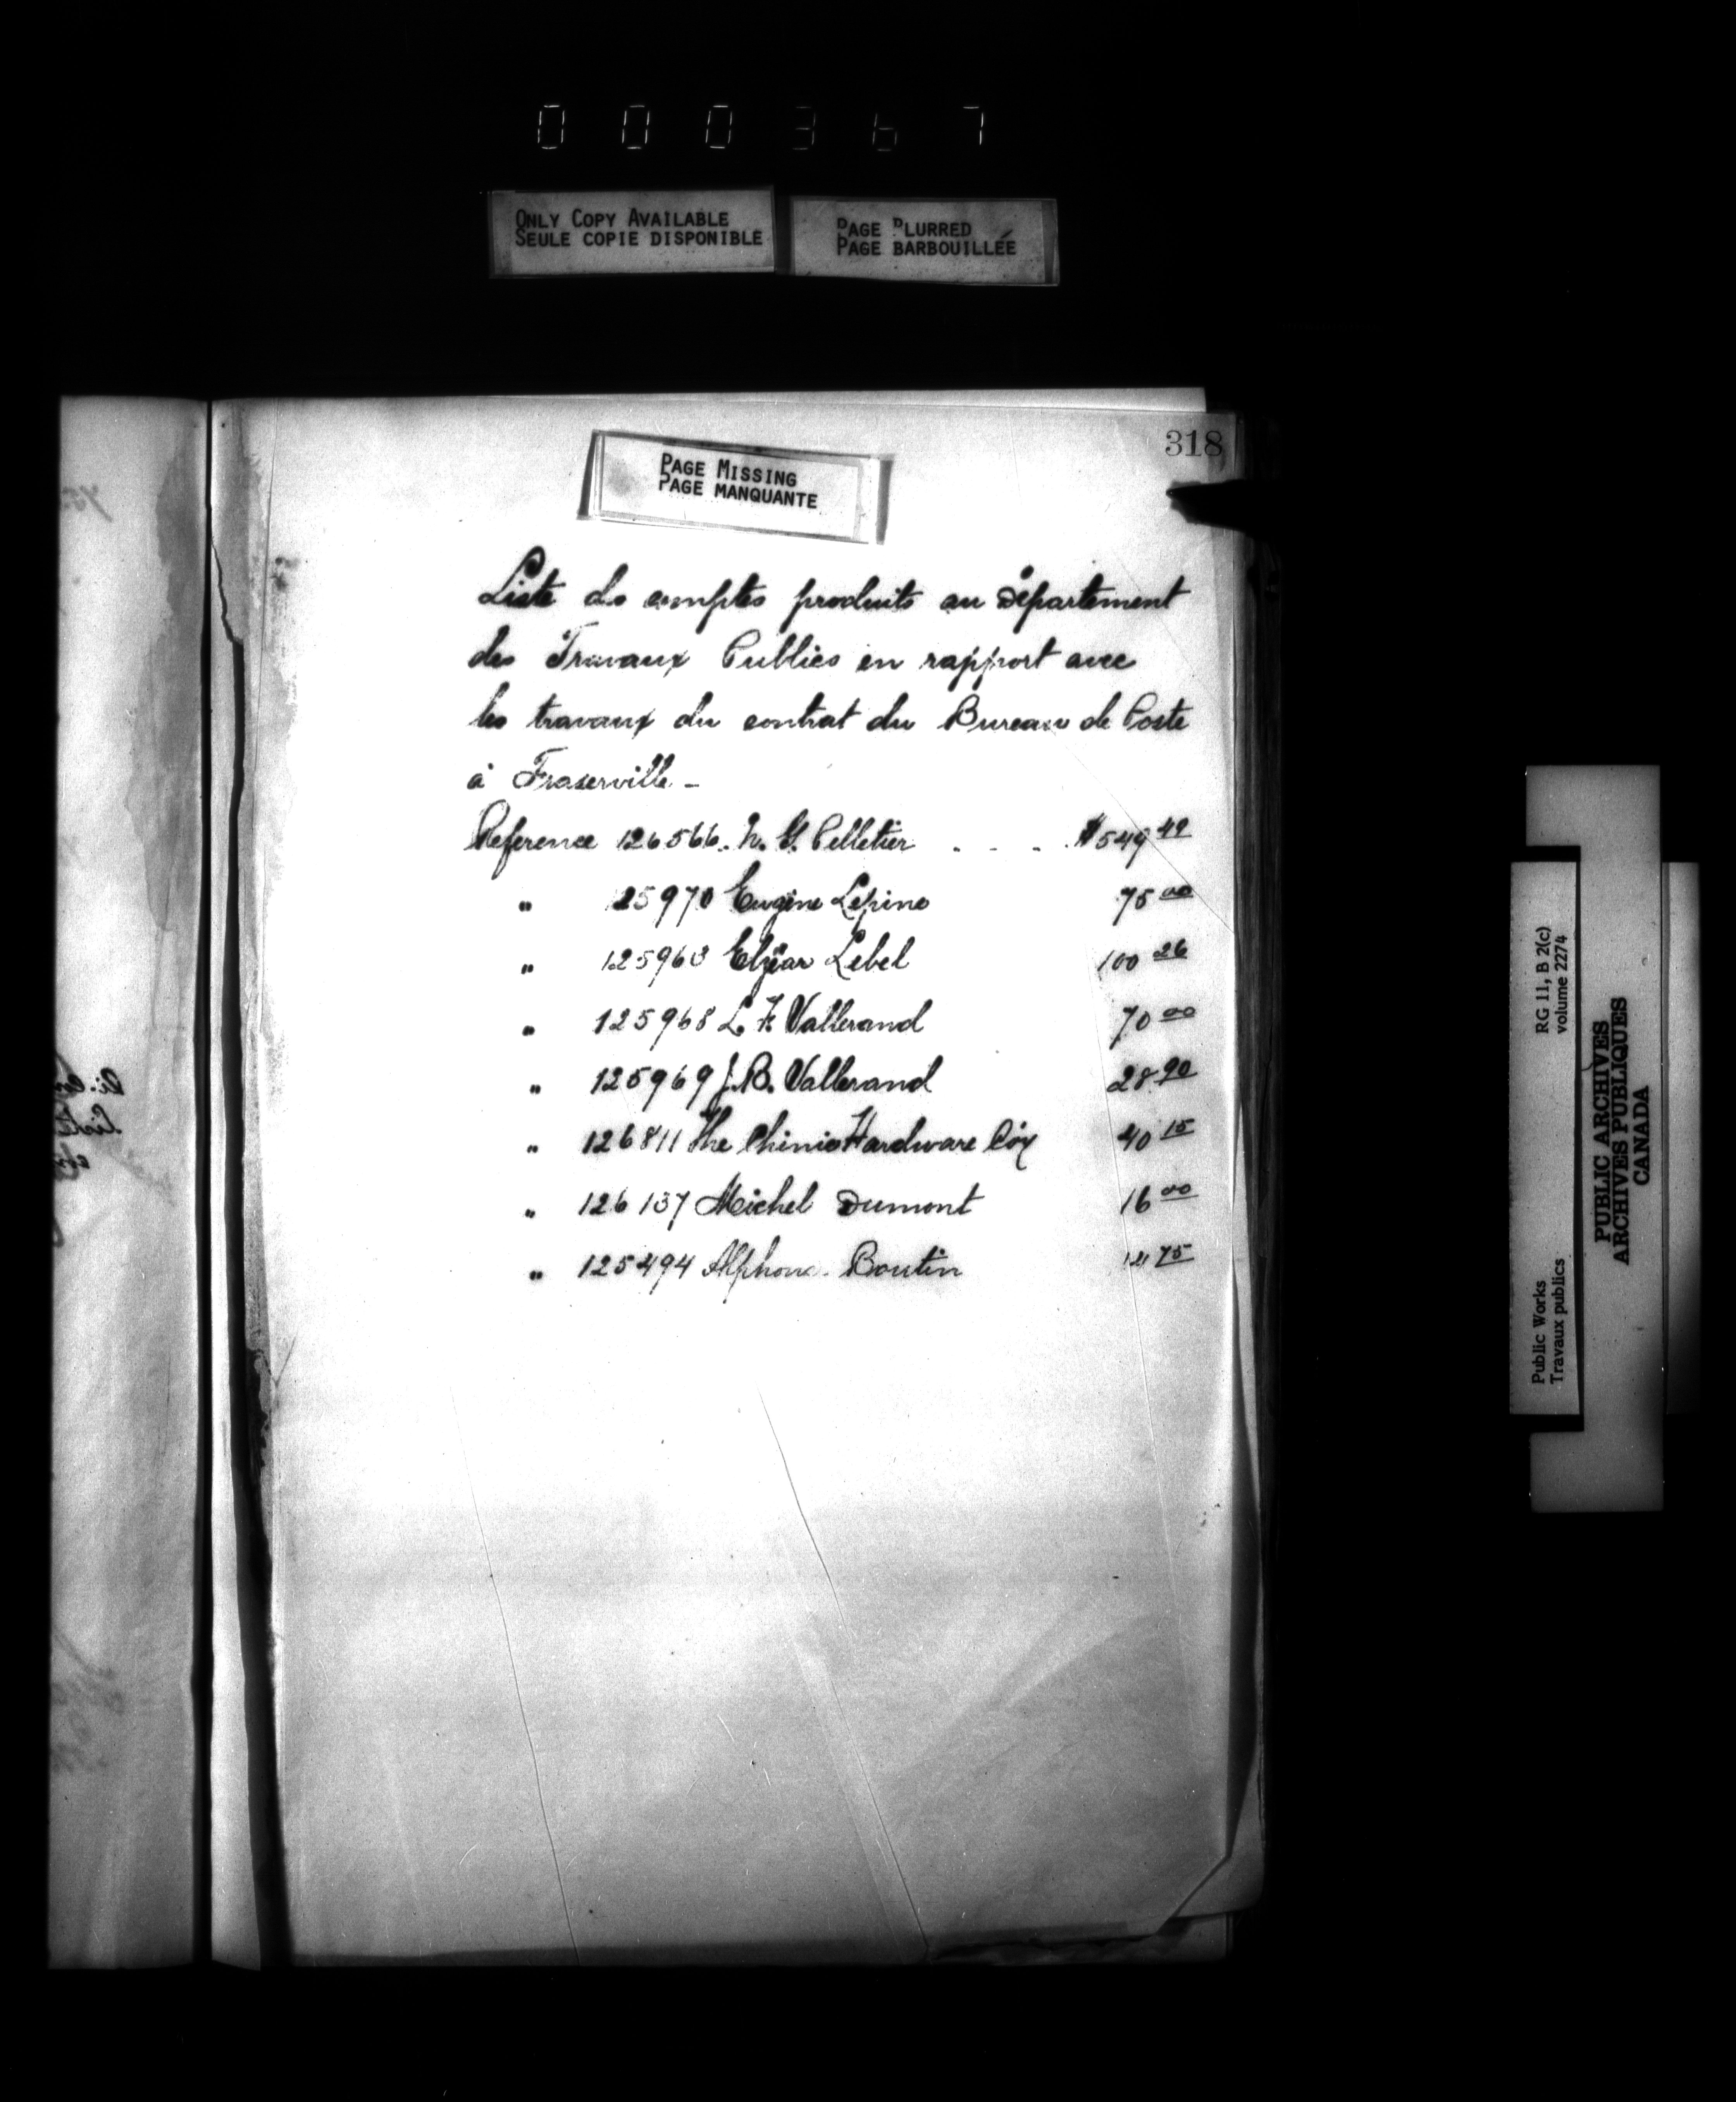 000367
ONLY COPY AVAILABLE
SEULE COPIE DISPONIBLE
PAGE BLURRED
PAGE BARBOUILLÉE
318
PAGE MISSING
PAGE MANQUANTE
Liste des comptes produits au Département
des Travaux Publics en rapport avec
les travaux du contrat du Bureau de Poste
à Fraserville -
Reference 126566. N. G. Pelletier . . . . $549 42
" 125970 Eugène Lepine 75 00
" 125963 Elzéar Lebel 100 26
" 125968 L. F. Vallerand 70 00
" 125969 J. B. Vallerand 28 90
" 126811 The Chinic Hardware Coy 40 15
" 126137 Michel Dumont 16 00
" 125494 Alphonse Boutin 75
Public Works
Travaux publics
RG 11, B 2(c)
volume 2274
PUBLIC ARCHIVES
ARCHIVES PUBLIQUES
CANADA